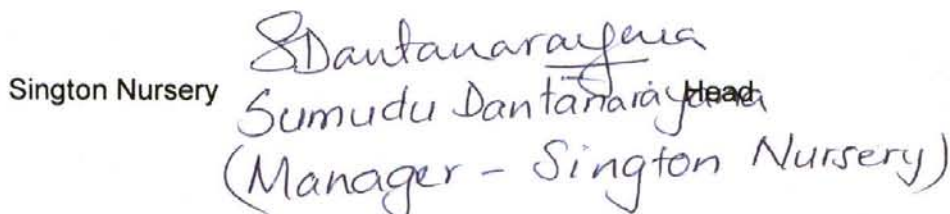 SDantanarayana
Sington Nursery Sumudu Dantanarayana Head
(Manager - Sington Nursery)